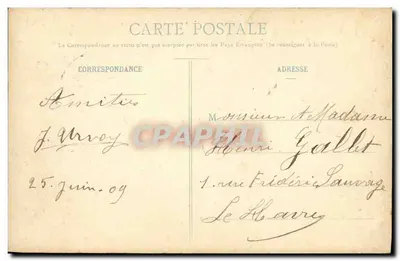 CARTE POSTALE
La Correspondance au recto n'est pas acceptée par tous les Pays Etrangers (Se renseigner à la Poste)
CORRESPONDANCE
ADRESSE
Amitiés
J. Urvoy
25 Juin. 09
Monsieur et Madame
Henri Gallet
1. rue Frédéric Sauvage
Le Havre
CPARAMA